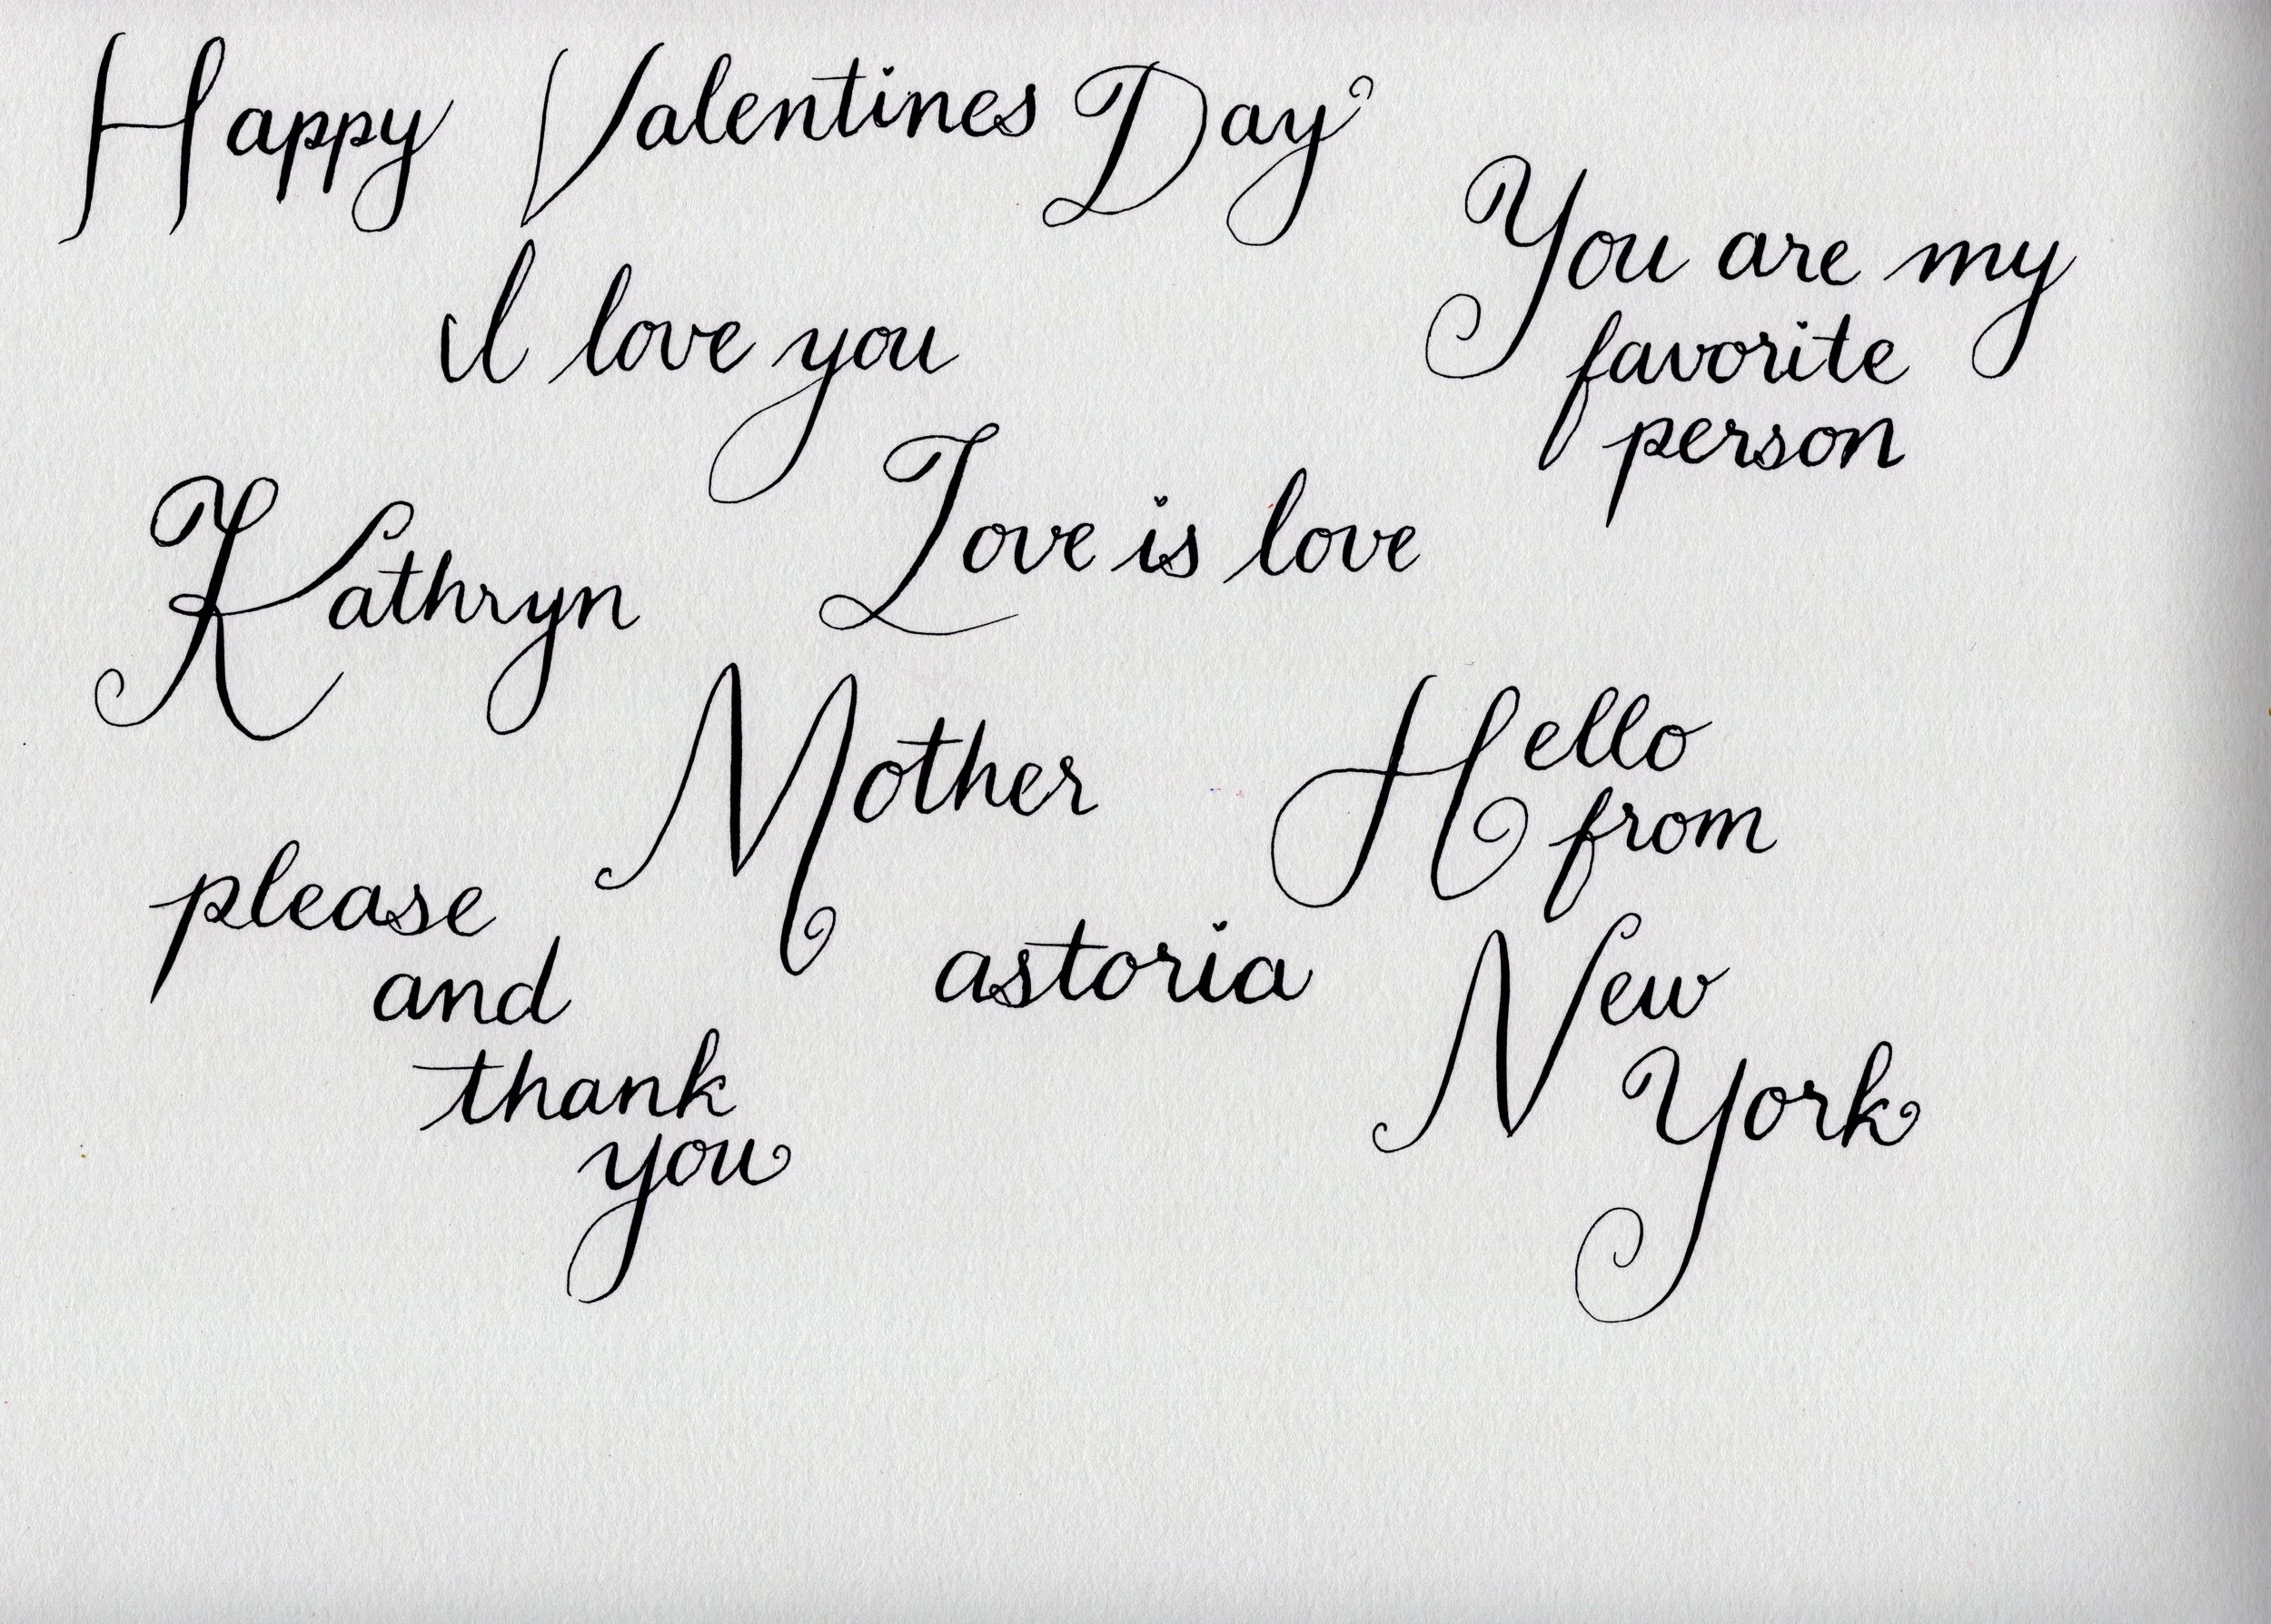 Happy Valentines Day
I love you
You are my
favorite
person
Kathryn
Love is love
Mother
Hello
from
New
York
please
and
thank
you
astoria